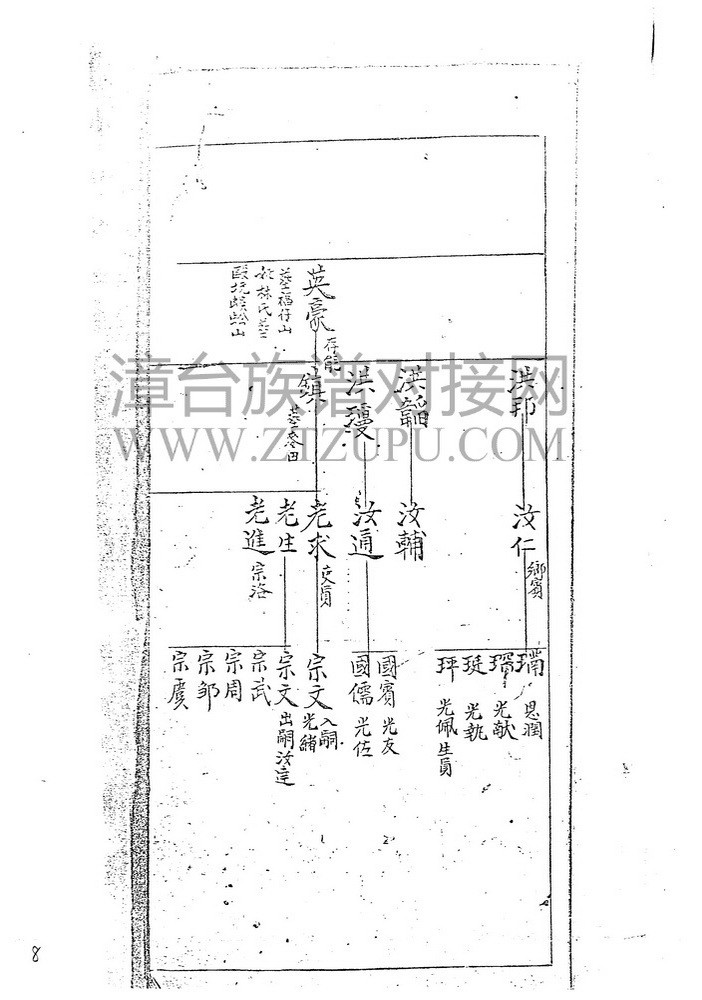 英豪
葬福仔山
妣林氏葬
洪邦
洪韜
洪瓊
鎮
存能
葬麥田
漳台族谱对接网
WWW.ZTZUPU.COM
汝仁
鄉賓
汝輔
汝通
老求
老生
老進
宗洛
思潤
光献
珽
光執
玶
光佩生員
國賓
光友
國儒
光佐
宗文
入嗣
光緒
宗文
出嗣汝定
宗武
宗周
宗邹
宗虞
1
2
8